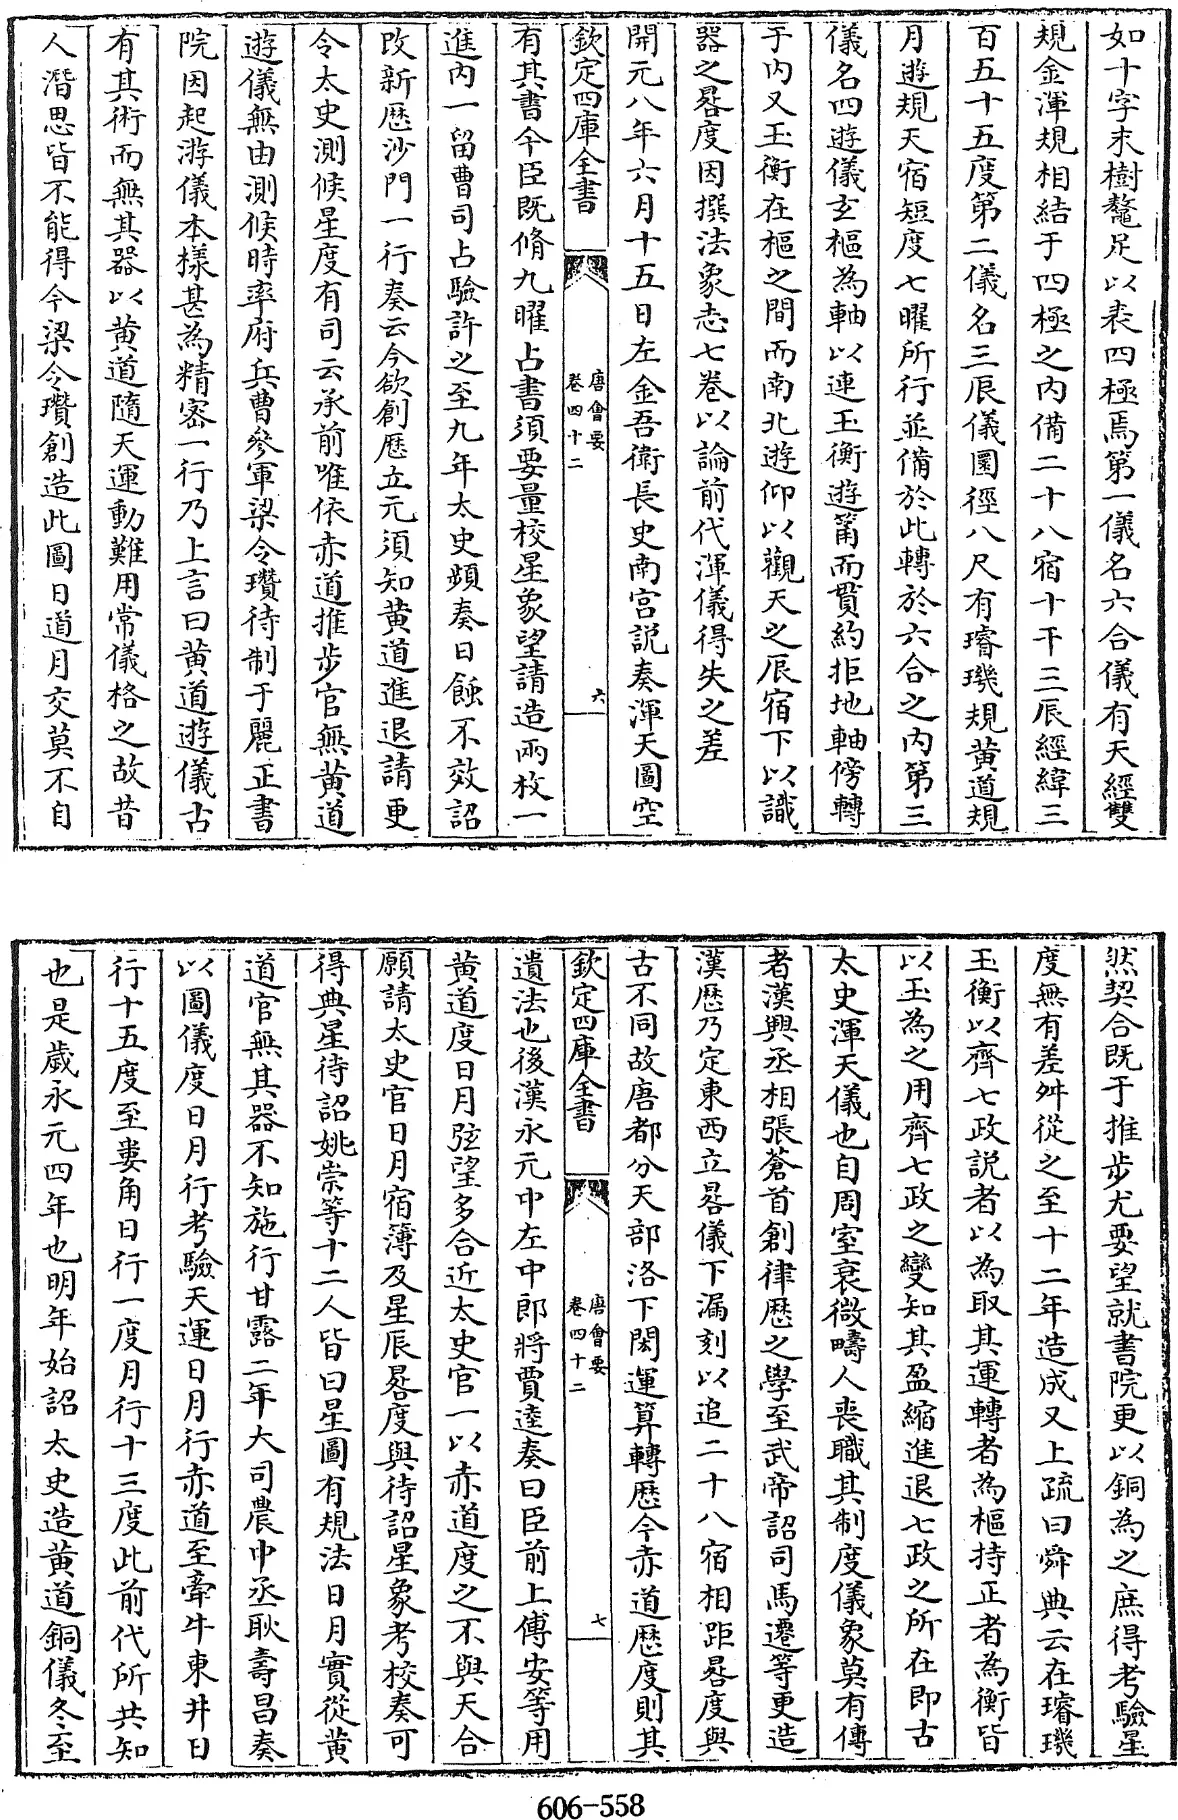 如十字末樹鼇足以表四極焉第一儀名六合儀有天經雙
規金渾規相結于四極之内備二十八宿十干三辰經緯三
百五十五度第二儀名三辰儀圓徑八尺有璿璣規黄道規
月遊規天宿短度七曜所行並備於此轉於六合之内第三
儀名四遊儀玄樞為軸以連玉衡遊筩而貫約拒地軸傍轉
于内又玉衡在樞之間而南北遊仰以觀天之辰宿下以識
器之晷度因撰法象志七卷以論前代渾儀得失之差
開元八年六月十五日左金吾衛長史南宫説奏渾天圖空
欽定四庫全書
唐會要
卷四十二
六
有其書今臣既脩九曜占書須要量校星象望請造兩枚一
進内一留曹司占驗許之至九年太史頻奏日蝕不效詔
改新厯沙門一行奏云今欲創厯立元須知黄道進退請更
令太史測候星度有司云承前唯依赤道推步官無黄道
遊儀無由測候時率府兵曹參軍梁令瓚待制于麗正書
院因起游儀本樣甚為精密一行乃上言曰黄道遊儀古
有其術而無其器以黄道隨天運動難用常儀格之故昔
人潛思皆不能得今梁令瓚創造此圖日道月交莫不自
然契合既于推步尤要望就書院更以銅為之庶得考驗星
度無有差舛從之至十二年造成又上疏曰舜典云在璿璣
玉衡以齊七政説者以為取其運轉者為樞持正者為衡皆
以玉為之用齊七政之變知其盈縮進退七政之所在即古
太史渾天儀也自周室衰微疇人喪職其制度儀象莫有傳
者漢興丞相張蒼首創律厯之學至武帝詔司馬遷等更造
漢厯乃定東西立晷儀下漏刻以追二十八宿相距晷度與
古不同故唐都分天部洛下閎運算轉厯今赤道厯度則其
欽定四庫全書
唐會要
卷四十二
七
遺法也後漢永元中左中郎將賈逵奏曰臣前上傅安等用
黄道度日月弦望多合近太史官一以赤道度之不與天合
願請太史官日月宿簿及星辰晷度與待詔星象考校奏可
得典星待詔姚崇等十二人皆曰星圖有規法日月實從黄
道官無其器不知施行甘露二年大司農中丞耿壽昌奏
以圖儀度日月行考驗天運日月行赤道至牽牛東井日
行十五度至婁角日行一度月行十三度此前代所共知
也是歲永元四年也明年始詔太史造黄道銅儀冬至
606-558